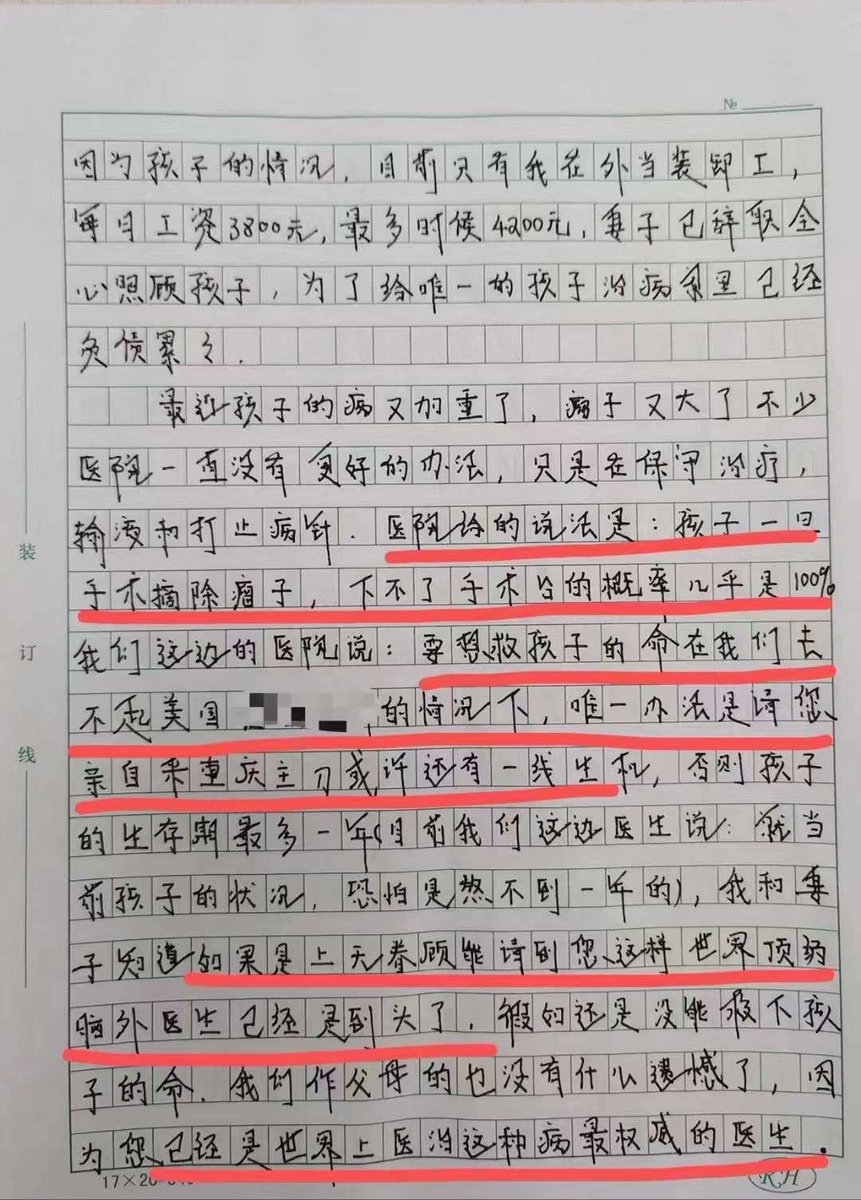 №
因为孩子的情况，目前只有我在外当装卸工，
每月工资3800元，最多时候4200元，妻子已辞职全
心照顾孩子，为了给唯一的孩子治病家里已经
负债累々.
最近孩子的病又加重了，瘤子又大了不少
医院一直没有更好的办法，只是在保守治疗，
输液和打止痛针.医院给的说法是：孩子一旦
手术摘除瘤子，下不了手术台的概率几乎是100%
我们这边的医院说：要想救孩子的命在我们去
不起美国的情况下，唯一办法是请您
亲自来重庆主刀或许还有一线生机，否则孩子
的生存期最多一年(目前我们这边医生说：就当
前孩子的状况，恐怕是熬不到一年的)，我和妻
子知道如果是上天眷顾能请到您这样世界顶级
脑外医生已经是到头了.假如还是没能救下孩
子的命.我们作父母的也没有什么遗憾了，因
为您已经是世界上医治这种病最权威的医生.
装
订
线
17×20
RH